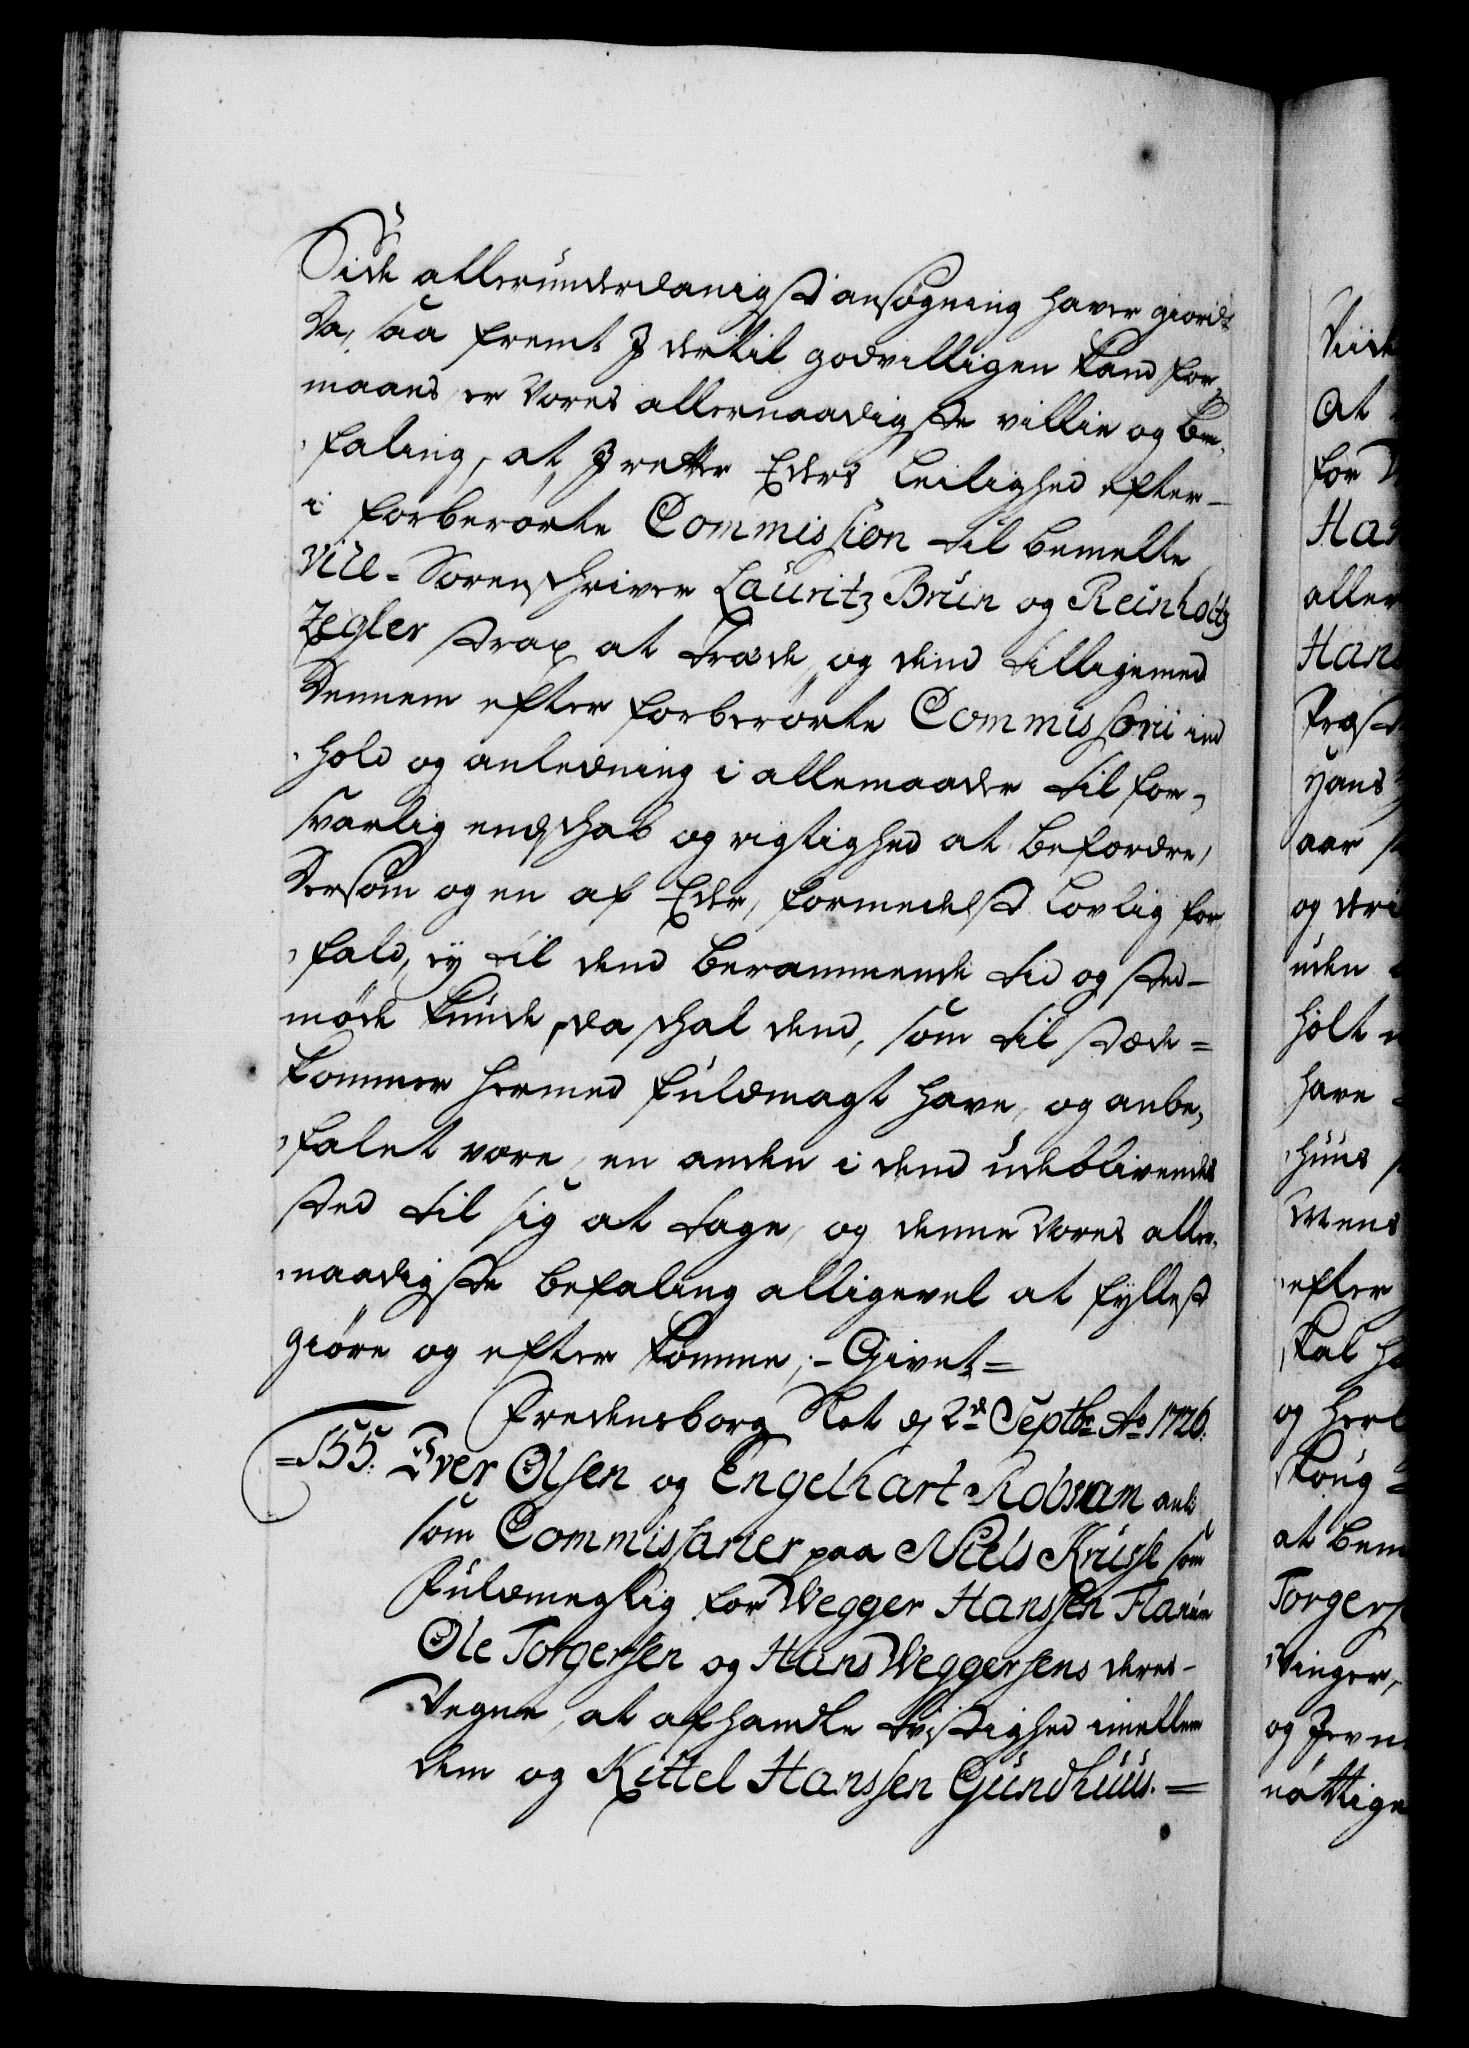 Side allerunderdanigst ansøgning haver giordt
Da, saa fremt I dertil godvilligen kand for¬
maaes, er Vores allernaadigste villie og be¬
faling, at I retter Eders Leilighed efter
i forberørte Commission til bemelte
Vice-Sorenschriver Lauritz Brun og Reinholtz
Zegler strax at træde, og dend tilligemed
Dennem efter forberørte Commissorii ind
hold og anledning i allemaader til for¬
svarlig endschab og rigtighed at befordre,
Dersom og en af Eder, formedelst lovlig for
fald, ey til dend berammende tid og sted
møde kunde, da schal dend, som til stæde=
kommer hermed fuldmagt have, og anbe¬
falet være, en anden i dend udeblivendes
sted til sig at tage, og denne Vores aller¬
naadigste befaling alligevel at fyllest
giøre og efter komme; - Givet=
Fredensborg Slot d 2d Septbr Ao 1726.
=155. Iver Olsen og Engelhart Robsam anl:
som Commissarier paa Niels Krusse som
Fuldmegtig for Wegger Hanssen
Ole Torgersen og Hans Weggersens deres
Vegne, at afhandle tvistighed imellem
dem og Kittel Hanssen Gundhuus. =
At
for
aller
og
uden
holt
have
huus
efter
skal
og
at
Torgers
Vinger,
og